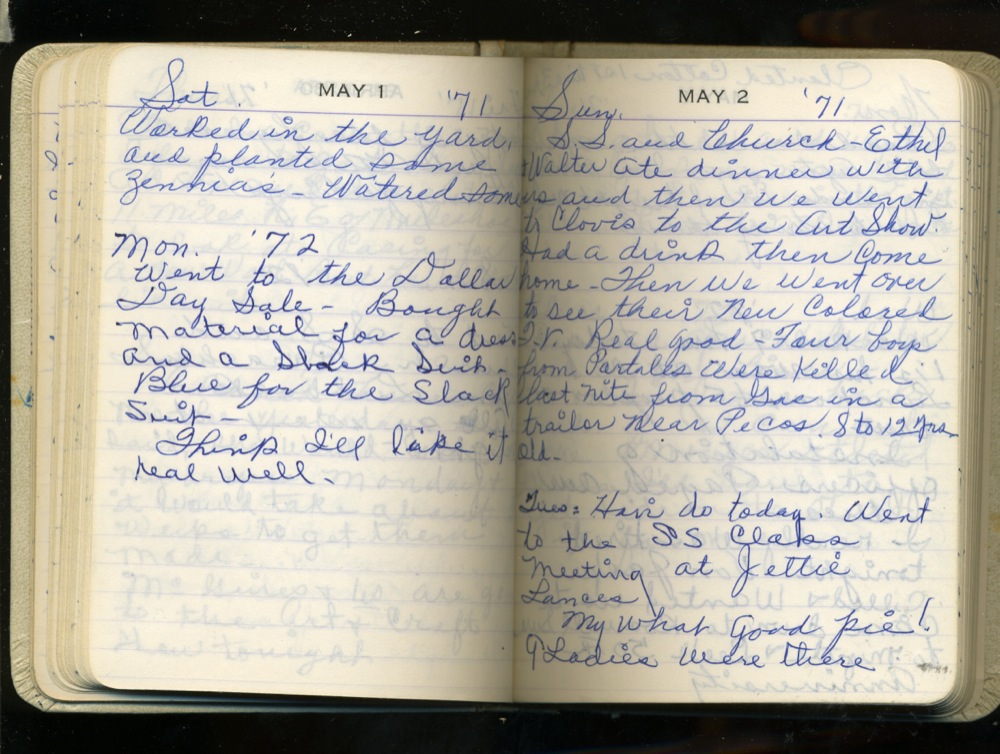 Sat. MAY 1 '71
Worked in the yard,
and planted some
Zennia's - Watered some
Mon. '72
Went to the Dollar
Day Sale - Bought
material for a dress
and a Slack Suit -
Blue for the Slack
Suit -
Think I'll like it
real well.
Sun. MAY 2 '71
S.S. and Church - Ethel
+ Walter ate dinner with
us and then we went
to Clovis to the Art Show.
Had a drink then come
home - Then we went over
to see their New Colored
T.V. Real good - Four boys
from Portales were Killed
last nite from Gas in a
trailor near Pecos. 8 to 12 yrs
old -
Tues: Hair do today. Went
to the SS Class
Meeting at Jettie
Lances
My What Good pie!
9 Ladies were there